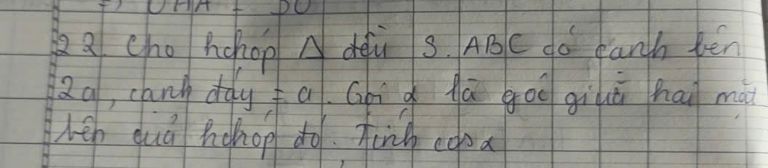 22. Cho hchóp Δ đều S.ABC có cạnh bên
2a, cạnh đáy = a. Gọi α là góc giữa hai mặt
bên của hchóp đó. Tính cos α